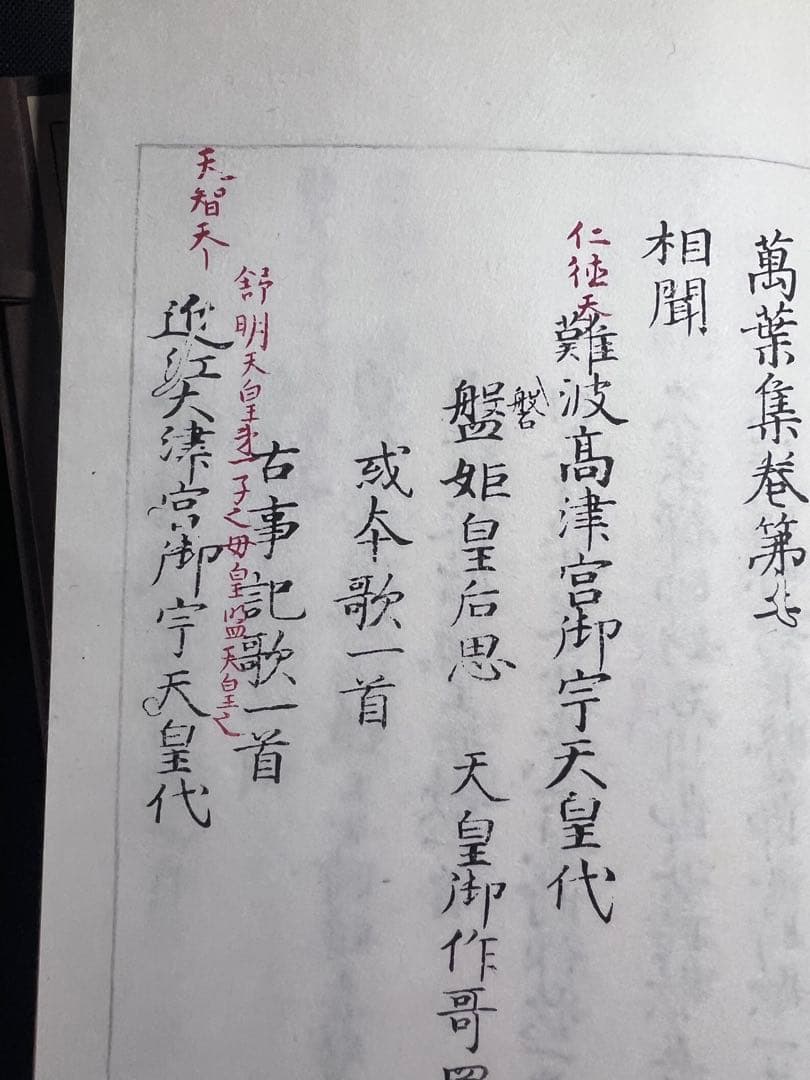 萬葉集巻第二
相聞
仁徳天
難波高津宮御宇天皇代
磐
盤姫皇后思 天皇御作哥四
或本歌一首
古事記歌一首
舒明天皇第一子之母皇
天皇之
天智天
近江大津宮御宇天皇代